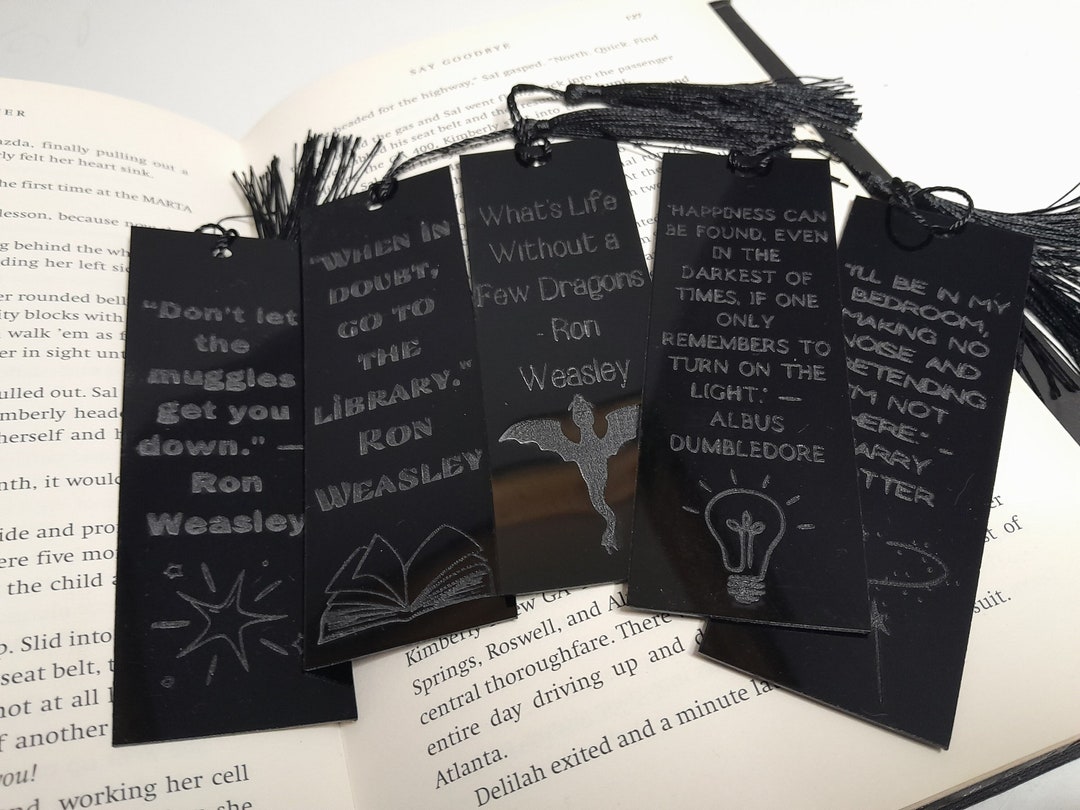 SAY GOODBYE
azda, finally pulling out a
ely felt her heart sink.
he first time at the MARTA
lesson, because now
g behind the wh
ding her left si
er rounded bell
ity blocks with
walk 'em as f
er in sight unt
ulled out. Sal
imberly heade
erself and h
nth, it would
ide and pro
ere five mo
the child a
p. Slid into
seat belt, t
not at all
f another
you!
working her cell
she
eaded for the highway." Sal gasped. "North. Quick. Find
the gas and Sal went
k into the passenger
his seat belt and
400, Kimberly
"Don't let
the
muggles
get you
down." —
Ron
Weasley
"WHEN IN
DOUBT,
GO TO
THE
LIBRARY."
RON
WEASLEY
What's Life
Without a
Few Dragons
- Ron
Weasley
"HAPPINESS CAN
BE FOUND, EVEN
IN THE
DARKEST OF
TIMES, IF ONE
ONLY
REMEMBERS TO
TURN ON THE
LIGHT." —
ALBUS
DUMBLEDORE
"I'LL BE IN MY
BEDROOM,
MAKING NO
NOISE AND
RETENDING
I'M NOT
ERE." -
ARRY
TTER
Kimberly
ew GA
Springs, Roswell, and Al
central thoroughfare. There
entire day driving up and d
Atlanta.
Delilah exited and a minute la
st of
suit.